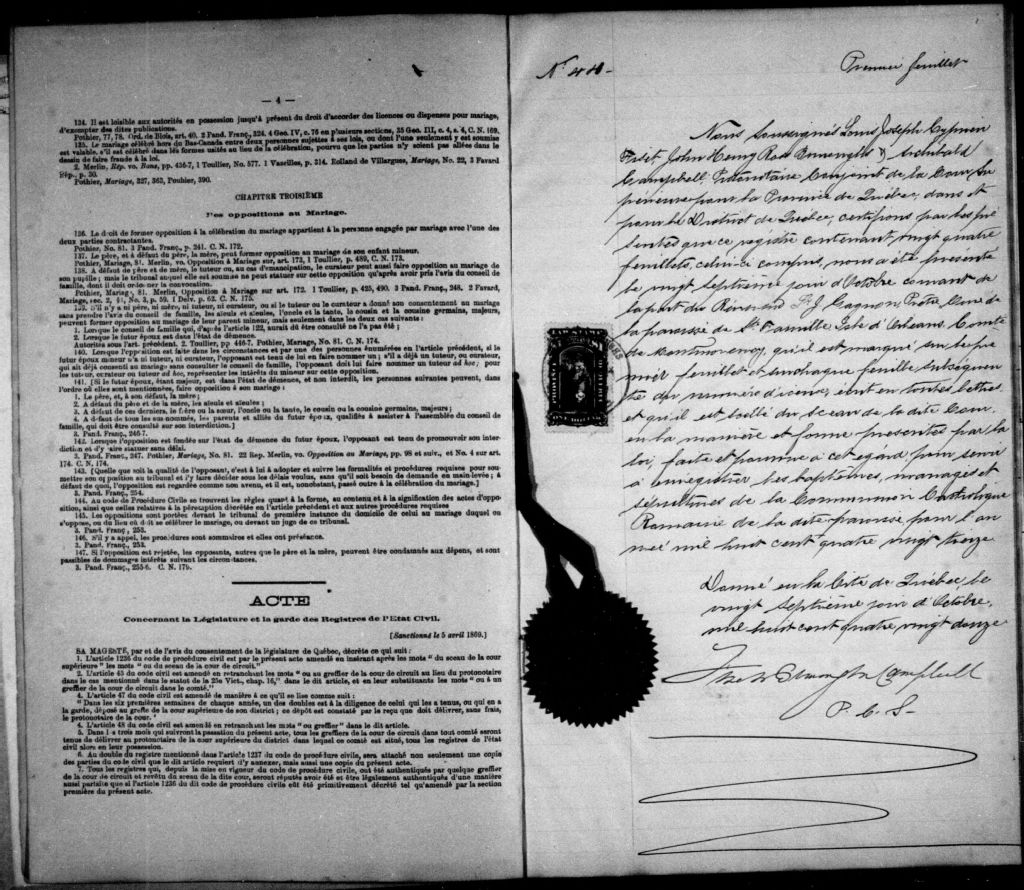 — 4 —
134. Il est loisible aux autorités en possession jusqu'à présent du droit d'accorder des licences ou dispenses pour mariage,
d'exempter des dites publications.
Pothier, 77, 78. Ord. de Blois, art. 40. 2 Pand. Franç., 324. 4 Geo. IV, c. 76 en plusieurs sections, 35 Geo. III, c. 4, s. 4, C. N. 169.
135. Le mariage célébré hors du Bas-Canada entre deux personnes sujettes à ses lois, ou dont l'une seulement y est soumise
est valable, s'il est célébré dans les formes usités au lieu de la célébration, pourvu que les parties n'y soient pas allées dans le
dessin de faire fraude à la loi.
2. Merlin, Rép. vo. Bans, pp. 436-7, 1 Toullier, No. 577. 1 Vazeilles, p. 314. Rolland de Villargues, Mariage, No. 22, 3 Favard
Rép., p. 30.
Pothier, Mariage, 327, 363, Pouhier, 390.
CHAPITRE TROISIÈME
Des oppositions au Mariage.
136. Le droit de former opposition à la célébration du mariage appartient à la personne engagée par mariage avec l'une des
deux parties contractantes.
Pothier, No. 81. 3 Pand. Franç., p. 241. C. N. 172.
137. Le père, et à défaut du père, la mère, peut former opposition au mariage de son enfant mineur.
Pothier, Mariage, 81. Merlin, vo. Opposition à Mariage sur art. 173, 1 Toullier, p. 489, C. N. 173.
138. A défaut de père et de mère, le tuteur ou, au cas d'émancipation, le curateur peut aussi faire opposition au mariage de
son pupille; mais le tribunal auquel elle est soumise ne peut statuer sur cette opposition qu'après avoir pris l'avis du conseil de
famille, dont il doit ordonner la convocation.
Pothier, Mariage, 81, Merlin, Opposition à Mariage sur art. 172. 1 Toullier, p. 425, 490. 3 Pand. Franç., 248. 2 Favard,
Mariage, sec. 2, No. 3, p. 59. 1 Delv. p. 62. C. N. 175.
139. S'il n'y a ni père, ni mère, ni tuteur, ni curateur, ou si le tuteur ou le curateur a donné son consentement au mariage
sans prendre l'avis du conseil de famille, les aïeuls et aïeules, l'oncle et la tante, le cousin et la cousine germains, majeurs,
peuvent former opposition au mariage de leur parent mineur, mais seulement dans les deux cas suivants :
1. Lorsque le conseil de famille qui, d'après l'article 122, aurait dû être consulté ne l'a pas été ;
2. Lorsque le futur époux est dans l'état de démence.
Autorités sous l'art. précédent. 2 Toullier, pp 446-7. Pothier, Mariage, No. 81. C. N. 174.
140. Lorsque l'opposition est faite dans les circonstances et par une des personnes énumérées en l'article précédent, si le
futur époux mineur n'a ni tuteur, ni curateur, l'opposant est tenu de lui en faire nommer un ; s'il a déjà un tuteur, ou curateur,
qui ait déjà consenti au mariage sans consulter le conseil de famille, l'opposant doit lui faire nommer un tuteur ad hoc; pour
les tuteur, curateur ou tuteur ad hoc, représenter les intérêts du mineur sur cette opposition.
141. [Si le futur époux, étant majeur, est dans l'état de démence, et non interdit, les personnes suivantes peuvent, dans
l'ordre où elles sont mentionnées, faire opposition à son mariage :
1. Le père, et, à son défaut, la mère ;
2. A défaut du père et de la mère, les aïeuls et aïeules ;
3. A défaut de ces derniers, le frère ou la sœur, l'oncle ou la tante, le cousin ou la cousine germains, majeurs ;
4. A défaut de tous les sus-nommés, les parents et alliés du futur époux, qualifiés à assister à l'assemblée du conseil de
famille, qui doit être consulté sur son interdiction.]
3. Pand. Franç., 246-7.
142. Lorsque l'opposition est fondée sur l'état de démence du futur époux, l'opposant est tenu de promouvoir son inter-
diction et d'y faire statuer sans délai.
3. Pand. Franç., 247. Pothier, Mariage, No. 81. 22 Rep. Merlin, vo. Opposition au Mariage, pp. 98 et suiv., et No. 4 sur art.
174. C. N. 174.
143. [Quelle que soit la qualité de l'opposant, c'est à lui à adopter et suivre les formalités et procédures requises pour sou-
mettre son opposition au tribunal et l'y faire décider sous les délais voulus, sans qu'il soit besoin de demande en main-levée ; à
défaut de quoi, l'opposition est regardée comme non avenu, et il est, nonobstant, passé outre à la célébration du mariage.]
3. Pand. Franç., 254.
144. Au code de Procédure Civile se trouvent les règles quant à la forme, au contenu et à la signification des actes d'oppo-
sition, ainsi que celles relatives à la péremption décrétée en l'article précédent et aux autres procédures requises
145. Les oppositions sont portées devant le tribunal de première instance du domicile de celui au mariage duquel on
s'oppose, ou du lieu où doit se célébrer le mariage, ou devant un juge de ce tribunal.
3. Pand. Franç., 253.
146. S'il y a appel, les procédures sont sommaires et elles ont préséance.
3. Pand. Franç., 253.
147. Si l'opposition est rejetée, les opposants, autres que le père et la mère, peuvent être condamnés aux dépens, et sont
passibles de dommages intérêts suivant les circonstances.
3. Pand. Franç., 255-6. C. N. 179.
ACTE
Concernant la Législature et la garde des Registres de l'Etat Civil.
[Sanctionné le 5 avril 1869.]
SA MAGESTE, par et de l'avis du consentement de la législature de Québec, décrète ce qui suit :
1. L'article 1236 du code de procédure civil est par le présent acte amendé en insérant après les mots " du sceau de la cour
supérieure " les mots " ou du sceau de la cour de circuit."
2. L'article 45 du code civil est amendé en retranchant les mots " ou au greffier de la cour de circuit au lieu du protonotaire
dans le cas mentionné dans le statut de la 25e Vict., chap. 16," dans le dit article, et en leur substituants les mots " ou à un
greffier de la cour de circuit dans le comté."
4. L'article 47 du code civil est amendé de manière à ce qu'il se lise comme suit :
" Dans les six premières semaines de chaque année, un des doubles est à la diligence de celui qui les a tenus, ou qui en a
la garde, déposé au greffe de la cour supérieure de son district ; ce dépôt est constaté par le reçu que doit délivrer, sans frais,
le protonotaire de la cour. "
4. L'article 48 du code civil est amendé en retranchant les mots " ou greffier " dans le dit article.
5. Dans les trois mois qui suivront la passation du présent acte, tous les greffiers de la cour de circuit dans tout comté seront
tenus de délivrer au protonotaire de la cour supérieure du district dans lequel ce comté est situé, tous les registres de l'état
civil alors en leur possession.
6. Au double du registre mentionné dans l'article 1237 du code de procédure civile, sera attaché non seulement une copie
des parties du code civil que le dit article requiert d'y annexer, mais aussi une copie du présent acte.
7. Tous les registres qui, depuis la mise en vigueur du code de procédure civile, ont été authentiqués par quelque greffier
de la cour de circuit et revêtu du sceau de la dite cour, seront réputés avoir été et être légalement authentiqués d'une manière
aussi parfaite que si l'article 1236 du dit code de procédure civile eût été primitivement décrété tel qu'amendé par la section
première du présent acte.
Nº 44 -
Premier feuillet
Nous soussignés Louis Joseph Cyprien
Fiset, John Henry Ross Burroughs & Archibald
Campbell, Protonotaire Conjoint de la Cour Su
périeure pour la Province de Québec, dans et
pour le District de Québec, certifions par les pré
sentes que ce registre contenant vingt quatre
feuillets, celui-ci compris, nous a été présenté
le vingt septième jour d'Octobre courant de
la part du Révérend F. J. Gagnon, Prêtre Curé de
la paroisse de Ste Famille Isle d'Orléans Comté
de Montmorency, qu'il est marqué sur le pre
mier feuillet et sur chaque feuille subséquen
te du numéro d'icelui, écrit en toutes lettres
et qu'il est scellé du sceau de la dite Cour,
en la manière et forme prescrites par la
loi, faite et pourvue à cet égard, pour servir
à enregistrer les baptêmes, mariages et
sépultures de la Communion Catholique
Romaine de la dite paroisse pour l'an
née mil huit cent quatre vingt treize
Donné en la Cité de Québec, le
vingt septième jour d'Octobre,
mil huit cent quatre vingt douze
Fiset Burroughs Campbell
P. C. S.